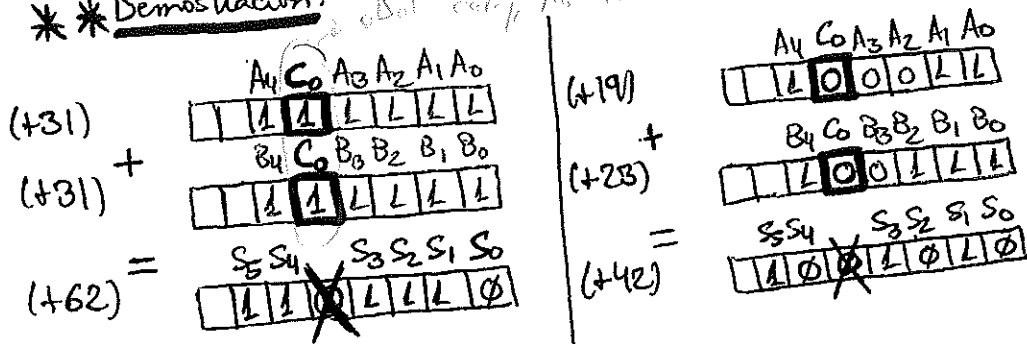 ** Demostración:
A4 C0 A3 A2 A1 A0
(+31) 1 1 1 1 1 1
+
B4 C0 B3 B2 B1 B0
(+31) 1 1 1 1 1 1
=
S5 S4 S3 S2 S1 S0
(+62) 1 1 0 1 1 1 0
A4 C0 A3 A2 A1 A0
(+19) 1 0 0 0 1 1
+
B4 C0 B3 B2 B1 B0
(+23) 1 0 0 1 1 1
=
S5 S4 S3 S2 S1 S0
(+42) 1 0 0 1 0 1 0